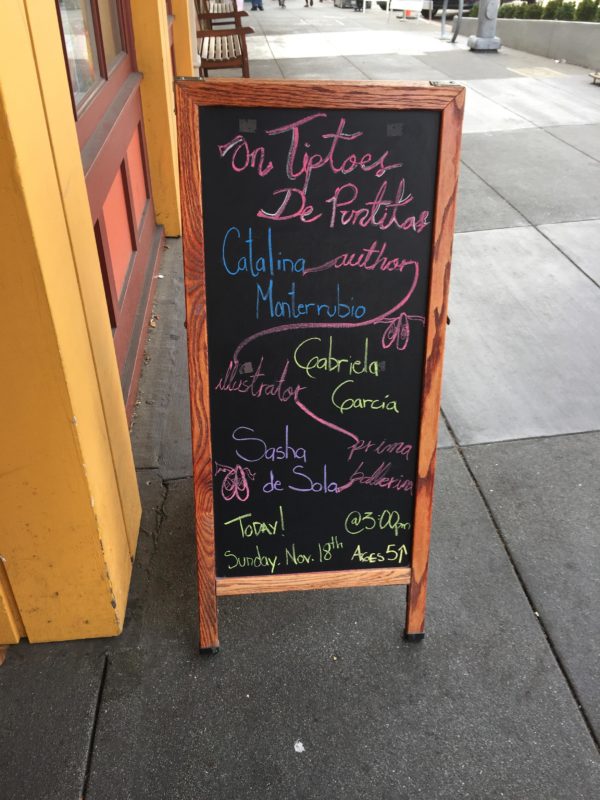 On Tiptoes
De Puntitas
Catalina author
Monterrubio
Gabriela
illustrator
García
Sasha prima
de Sola ballerina
TODAY! @3:00pm
Sunday. Nov. 18th AGES 5↑